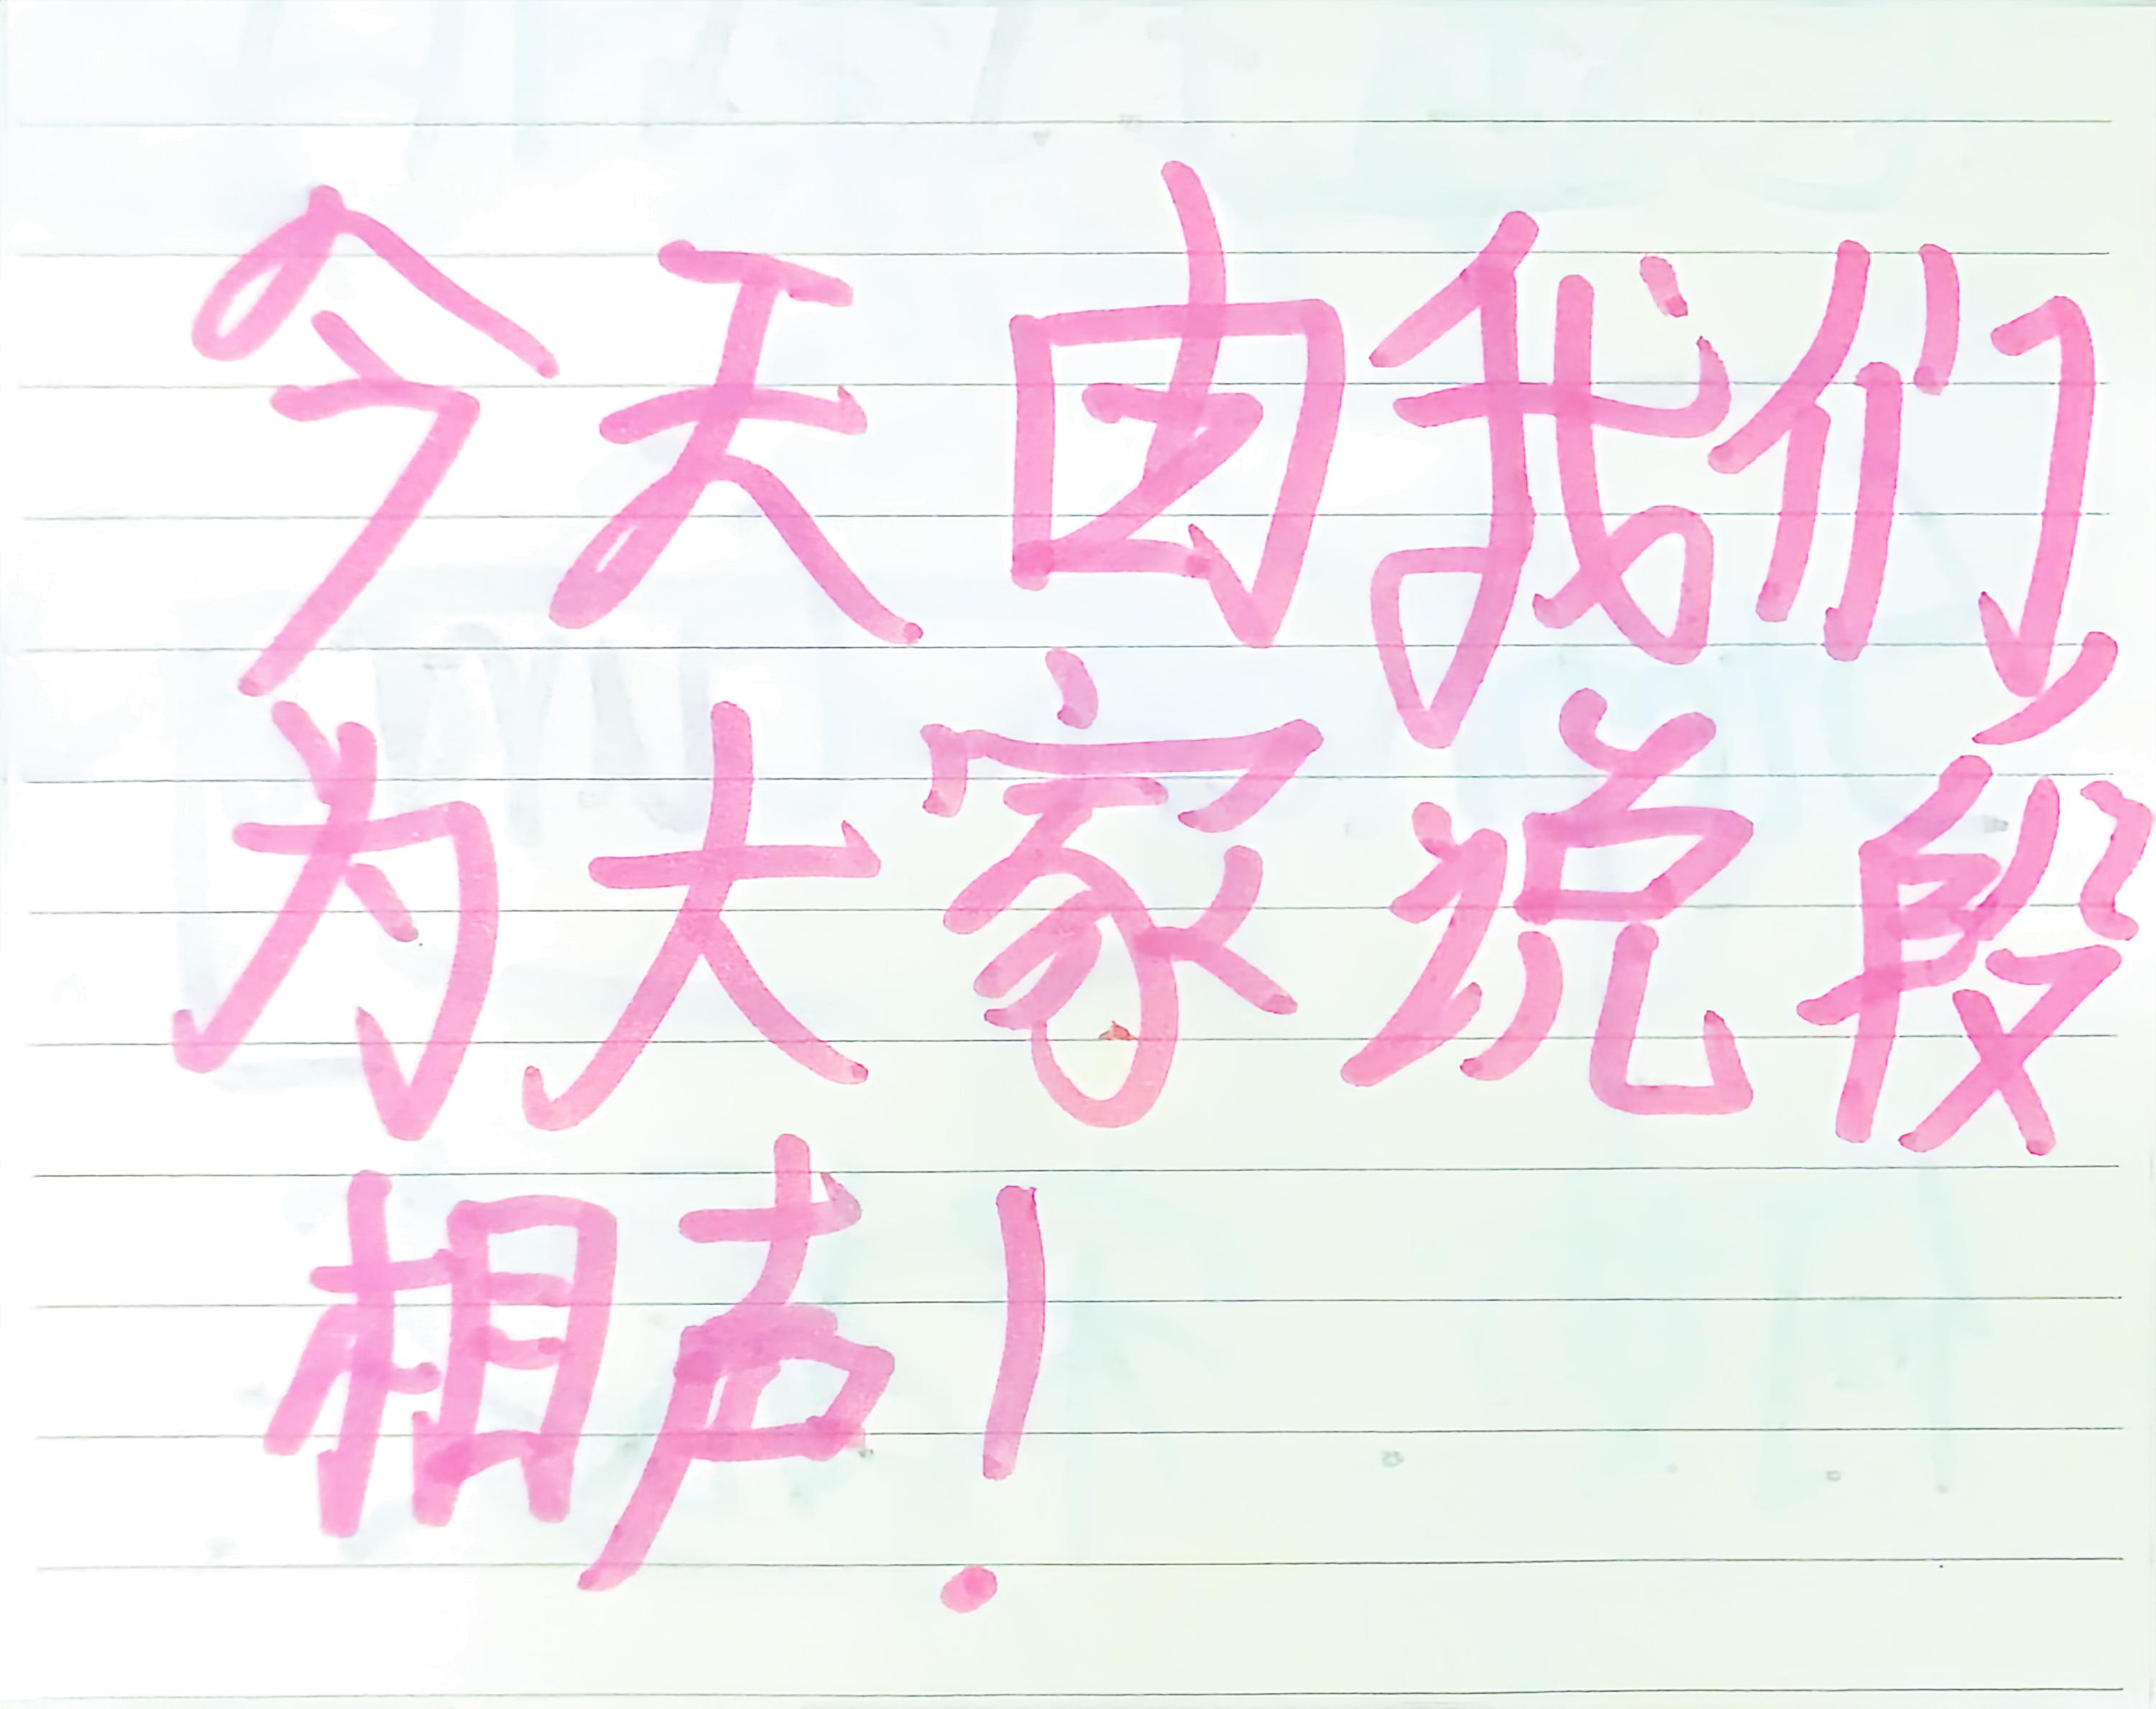 今天由我们,
为大家说段
相声!